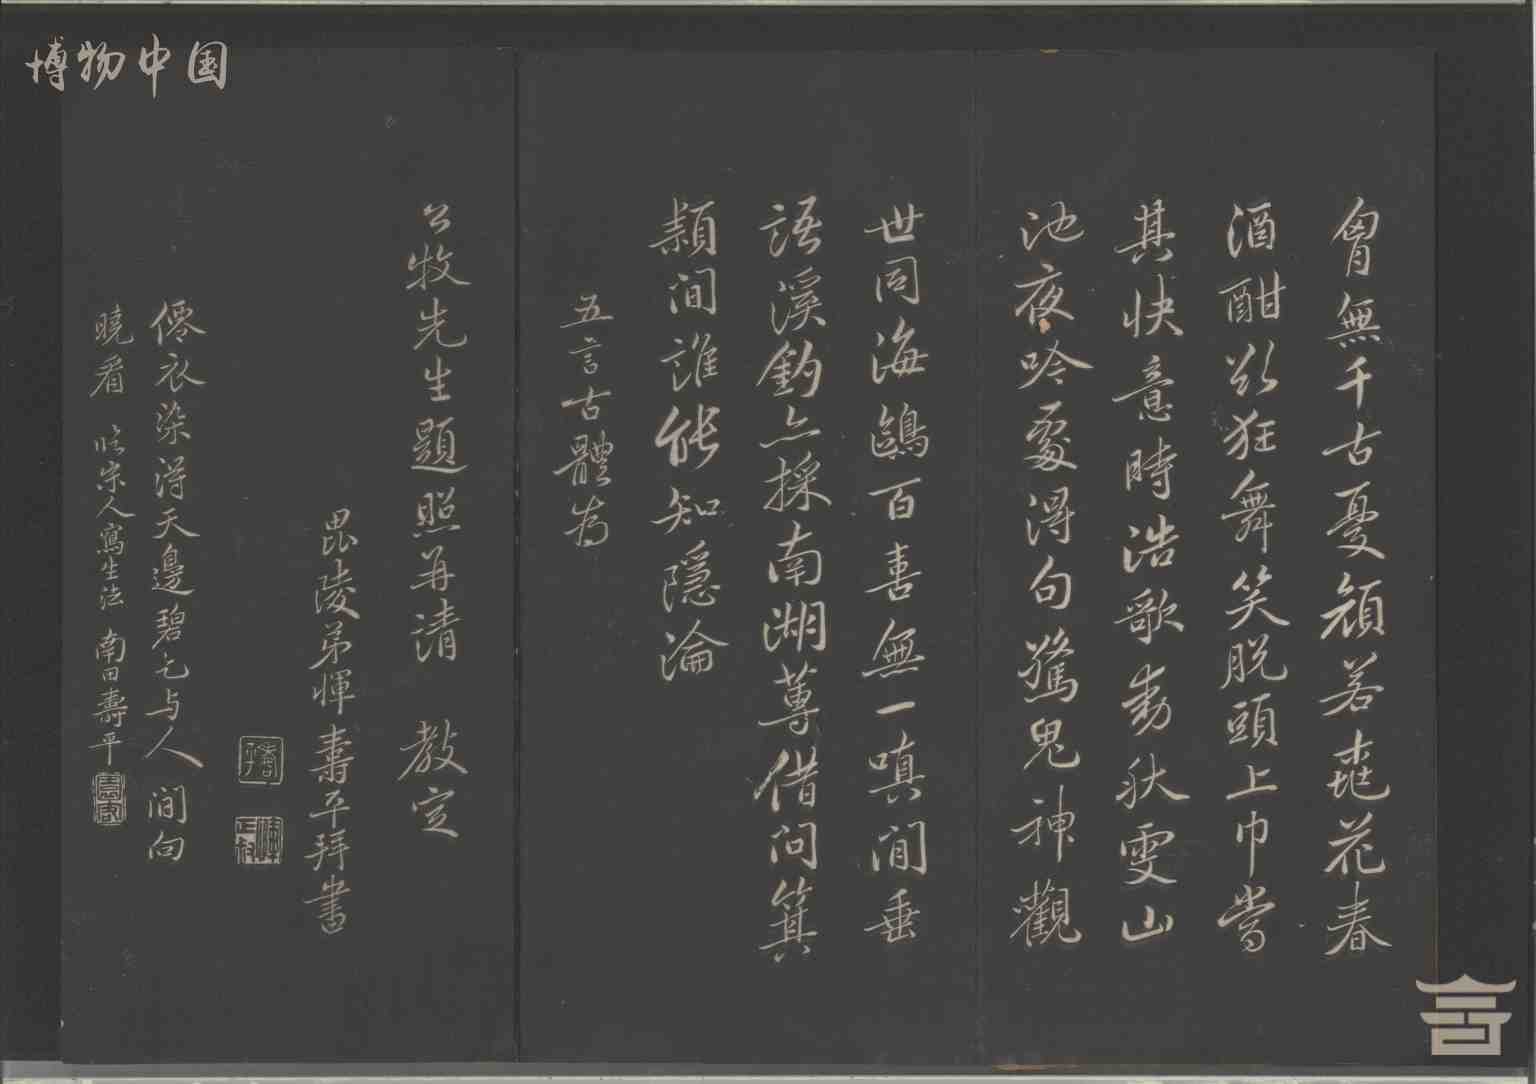 博物中国
胷無千古憂顔若桃花春
酒酣欲狂舞笑脱頭上巾當
其快意時浩歌動秋雯山
池夜吟處得句驚鬼神觀
世同海鷗百喜無一嗔閒垂
語溪釣亦採南湖蓴借問箕
潁間誰能知隱淪
五言古體為
公牧先生題照并清 教定
毘陵弟惲壽平拜書
僊衣染得天邊碧乞与人間向
曉看 临宋人寫生法 南田壽平